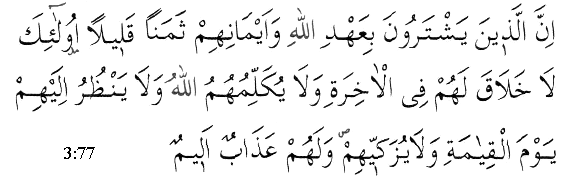 اِنَّ الَّذ۪ينَ يَشْتَرُونَ بِعَهْدِ اللهِ وَاَيْمَانِهِمْ ثَمَنًا قَل۪يلًا اُو۬لٰٓئِكَ
لَا خَلَاقَ لَهُمْ فِى الْاٰخِرَةِ وَلَا يُكَلِّمُهُمُ اللهُ وَلَا يَنْظُرُ اِلَيْهِمْ
يَوْمَ الْقِيٰمَةِ وَلَا يُزَكّ۪يهِمْۖ وَلَهُمْ عَذَابٌ اَل۪يمٌ 3:77